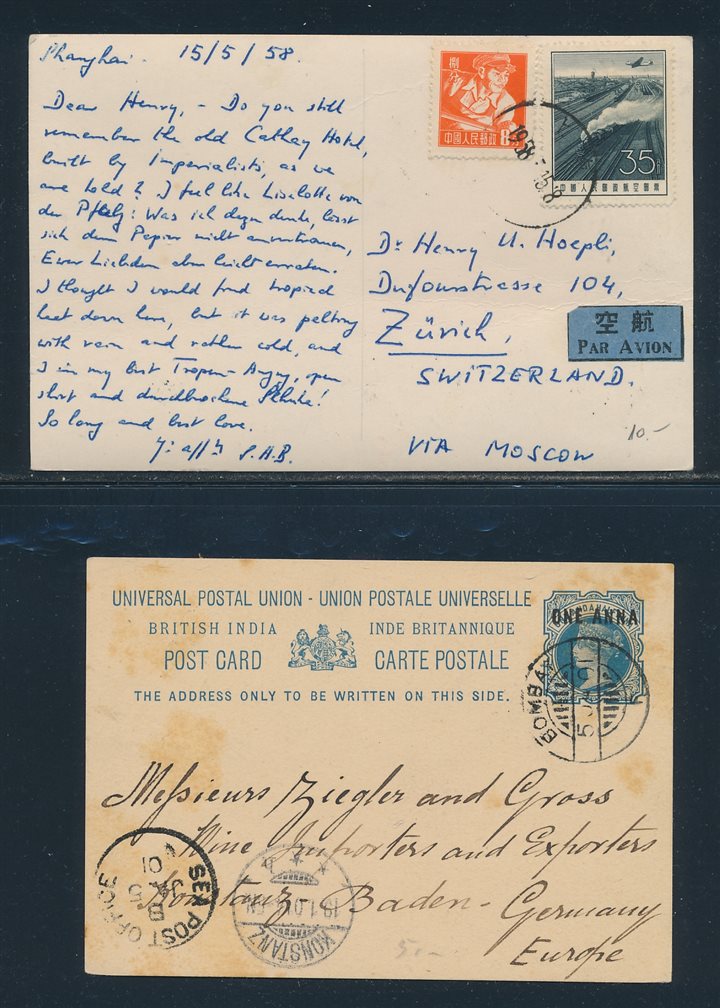 Shanghai. 15/5/58.
Dear Henry, - Do you still
remember the old Cathay Hotel,
built by Imperialists, as we
are told? I feel like Liselotte von
der Pfalz: Was ich degen denke, lässt
sich dem Papier nicht anvertrauen,
Euer Liebden aber leicht erraten.
I thought I would find tropical
heat down here, but it was pelting
with rain and rather cold, and
I in my best Tropen-Anzug, open
shirt and durchbrochene Schuhe!
So long and best love.
P.A.B.
捌分
中國人民郵政 8
35
中國人民郵政航空郵票
Dr Henry U. Hoepli,
Dufourstrasse 104,
Zürich,
SWITZERLAND.
VIA MOSCOW
空航
PAR AVION
10.-
UNIVERSAL POSTAL UNION - UNION POSTALE UNIVERSELLE
BRITISH INDIA INDE BRITANNIQUE
POST CARD CARTE POSTALE
THE ADDRESS ONLY TO BE WRITTEN ON THIS SIDE.
ONE ANNA
BOMBAY
5 JA 01
Messieurs Ziegler and Gross
Wine Importers and Exporters
Konstanz - Baden - Germany
Europe
SEA POST OFFICE
B
JA 5
01
KONSTANZ
19.1.01